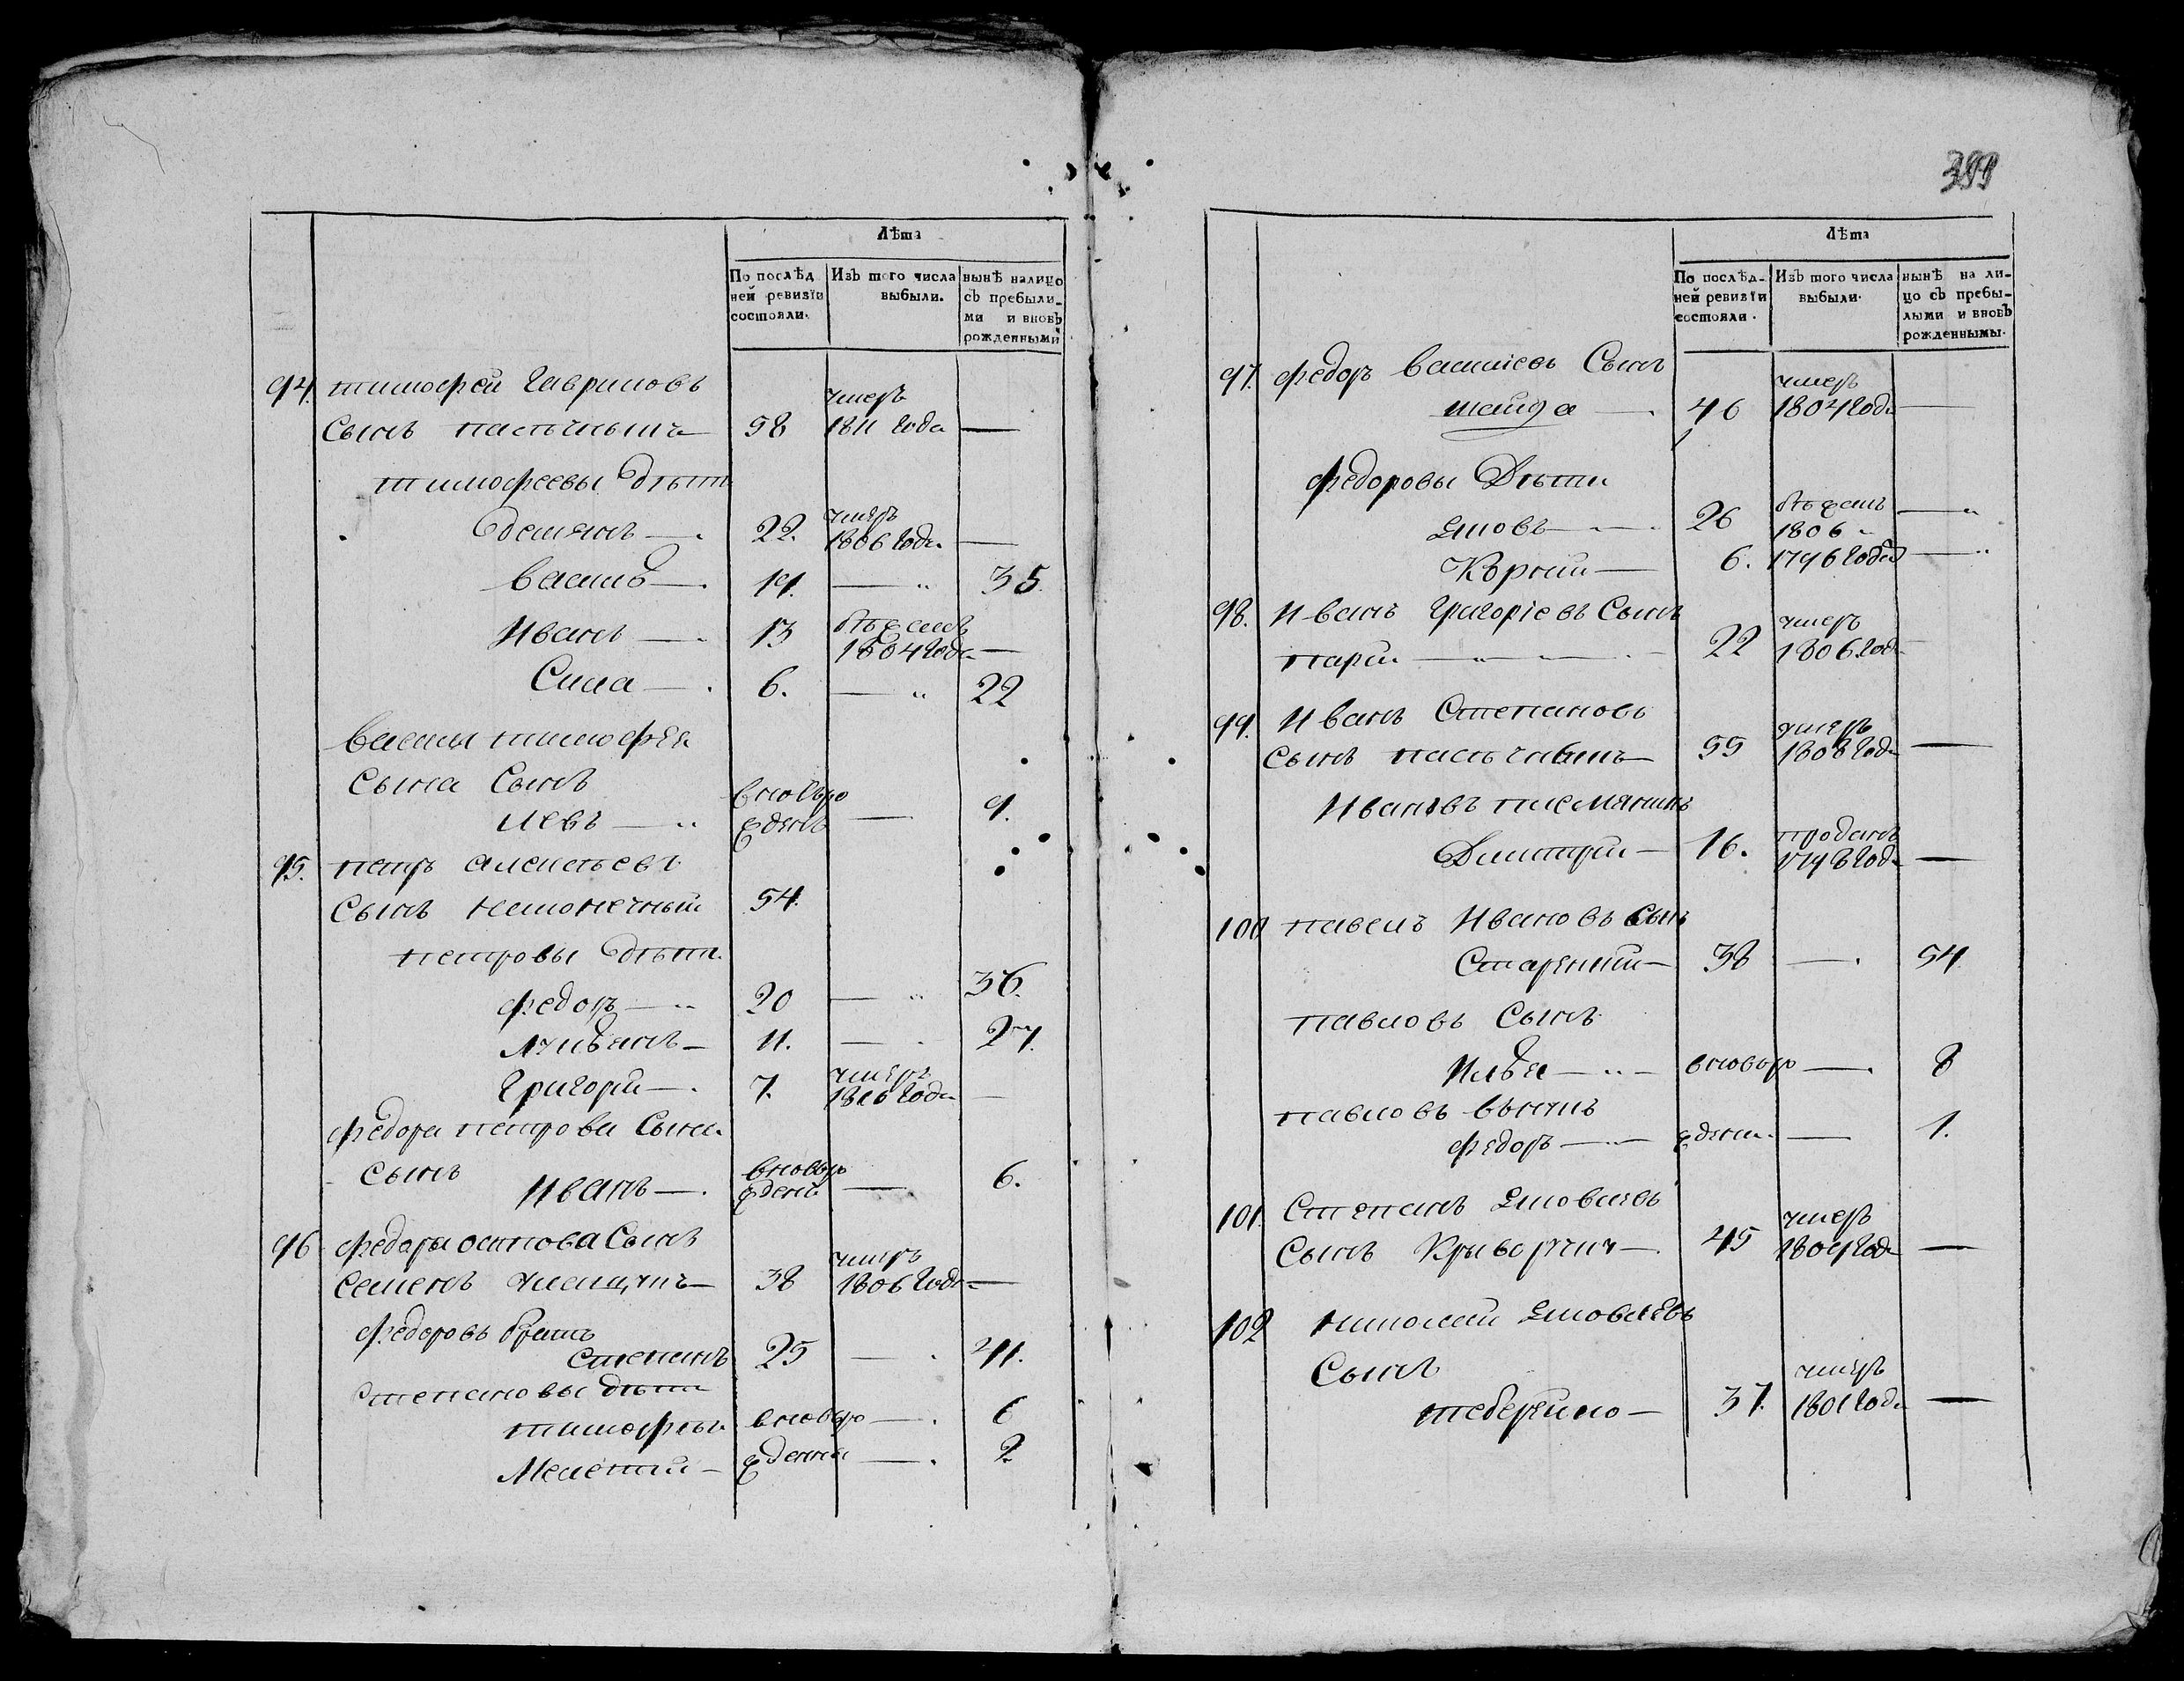 399
Лѣта
По послѣд
ней ревизїи
состояли.
Изъ того числа
выбыли.
нынѣ налицо
съ пребыли-
ми и вновь
рожденными
94. тимофей Гавриловъ
умеръ
сынъ 58 1811 года —
тимофеевы дѣти
демянъ — 22. умеръ
1806 года —
василь — 19. — 35.
Иванъ — 13 бѣжалъ
1804 года —
Сила — 6. — 22
василя тимофея
сына сынъ
левъ — вновьро
жденъ — 9.
95. петръ алексѣевъ
сынъ 54.
петровы дѣти
федоръ — 20 — 36.
лукьянъ — 11. — 27.
Григори — 7. умеръ
1806 года —
федора петрова сына
сынъ Иванъ — вновьро
жденъ — 6.
96 федора осипова сынъ
семенъ 38 умеръ
1806 года —
федоровъ братъ
степанъ 25 — 41.
степановы дѣти
тимофѣй вновьро — 6
Мелетий — жденны — 2
Лѣта
По послѣд-
ней ревизїи
состояли.
Изъ того числа
выбыли.
нынѣ на ли-
цо съ пребы-
лыми и вновь
рожденнымы.
97. федоръ васильевъ Сынъ
46 умеръ
1804 год —
федоровы Дѣти
яковъ — 26 бѣжалъ
1806 —
6. 1796 года —
98. Иванъ григорїевъ Сынъ
22 умеръ
1806 год —
99. Иванъ Степановъ
сынъ 55 умеръ
1808 год —
Ивановъ племянникъ
Дмитрии — 16. проданъ
1798 год —
100 павелъ Ивановъ сынъ
38 — 54
павловъ сынъ
Илья — вновьро — 8
павловъ внукъ
федоръ — ждены — 1.
101. Степанъ яковлевъ
сынъ 45 умеръ
1804 год —
102 николай яковлевъ
сынъ
37. умеръ
1801 год —